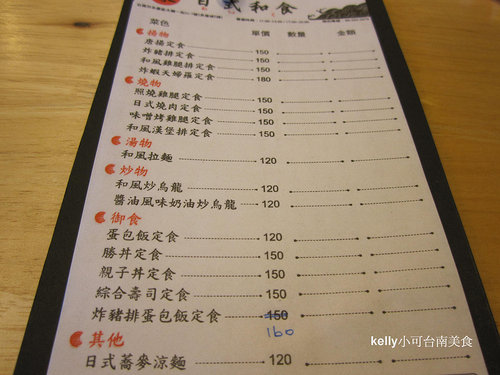 日式和食
菜色 單價 數量 金額
揚物
唐揚定食 150
炸豬排定食 150
和風雞腿排定食 150
炸蝦天婦羅定食 180
燒物
照燒雞腿定食 150
日式燒肉定食 150
味噌烤雞腿定食 150
和風漢堡排定食 150
湯物
和風拉麵 120
炒物
和風炒烏龍 120
醬油風味奶油炒烏龍 120
御食
蛋包飯定食 120
勝丼定食 150
親子丼定食 150
綜合壽司定食 150
炸豬排蛋包飯定食 150
160
其他
日式蕎麥涼麵 120
kelly小可台南美食